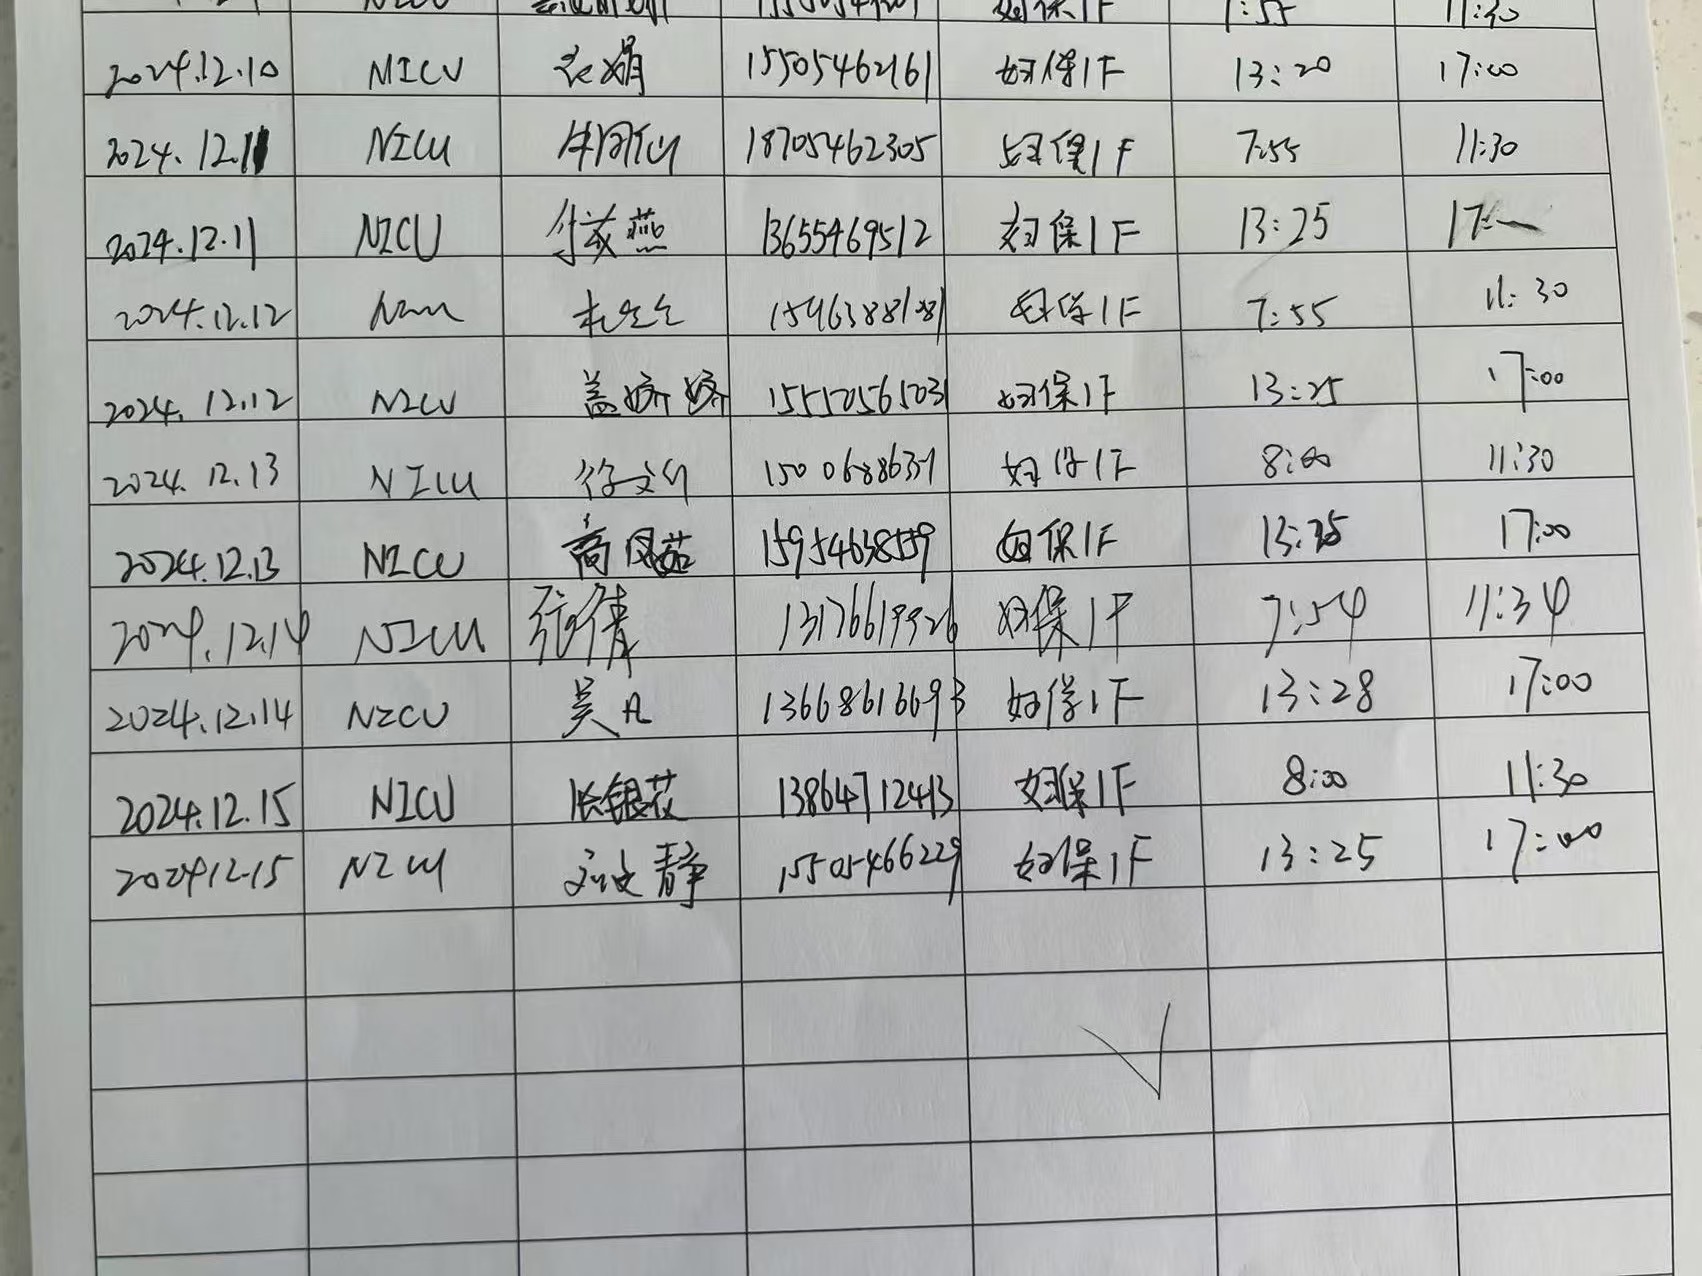 NICU 妇保1F 7:55 11:30
2024.12.10 NICU 娟 15505462161 妇保1F 13:20 17:00
2024.12.11 NICU 18705462305 妇保1F 7:55 11:30
2024.12.11 NICU 燕 13655469512 妇保1F 13:25
2024.12.12 NICU 妇保1F 7:55 11:30
2024.12.12 NICU 盖娇娇 15550565031 妇保1F 13:25 17:00
2024.12.13 NICU 妇保1F 8:00 11:30
2024.12.13 NICU 妇保1F 13:25 17:00
2024.12.14 NICU 张倩 13176619926 妇保1F 7:54 11:34
2024.12.14 NICU 吴凡 13668616693 妇保1F 13:28 17:00
2024.12.15 NICU 张银花 13864712413 妇保1F 8:00 11:30
2024.12.15 NICU 刘文静 15505466229 妇保1F 13:25 17:00